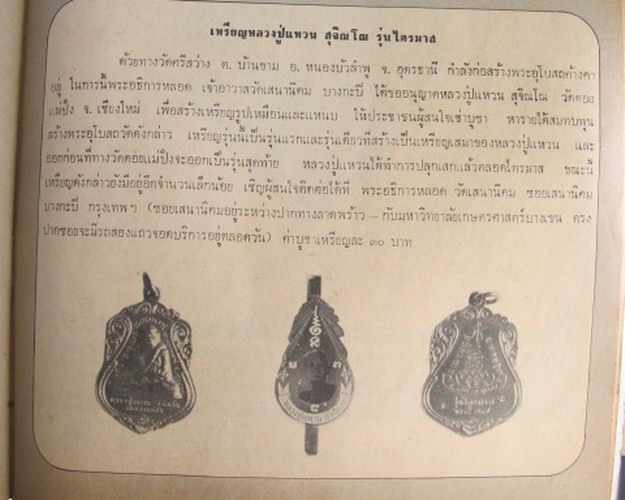 เหรียญหลวงปู่แหวน สุจิณโณ รุ่นไตรมาส
ด้วยทางวัดศรีสว่าง ต. บ้านขาม อ. หนองบัวลำพู จ. อุดรธานี กำลังก่อสร้างพระอุโบสถค้างคา
อยู่ ในการนี้พระอธิการหลอด เจ้าอาวาสวัดเสนานิคม บางกะปิ ได้ขออนุญาตหลวงปู่แหวน สุจิณโณ วัดดอย
แม่ปั๋ง จ. เชียงใหม่ เพื่อสร้างเหรียญรูปเหมือนและแหนบ ให้ประชาชนผู้สนใจเช่าบูชา หารายได้สมทบทุน
สร้างพระอุโบสถวัดดังกล่าว เหรียญรุ่นนี้เป็นรุ่นแรกและรุ่นเดียวที่สร้างเป็นเหรียญเสมาของหลวงปู่แหวน และ
ออกก่อนที่ทางวัดดอยแม่ปั๋งจะออกเป็นรุ่นสุดท้าย หลวงปู่แหวนได้ทำการปลุกเสกแล้วตลอดไตรมาส ขณะนี้
เหรียญดังกล่าวยังมีอยู่อีกจำนวนเล็กน้อย เชิญผู้สนใจติดต่อได้ที่ พระอธิการหลอด วัดเสนานิคม ซอยเสนานิคม
บางกะปิ กรุงเทพฯ (ซอยเสนานิคมอยู่ระหว่างปากทางลาดพร้าว – กับมหาวิทยาลัยเกษตรศาสตร์บางเขน ตรง
ปากซอยจะมีรถสองแถวจอดบริการอยู่ตลอดวัน) ค่าบูชาเหรียญละ ๓๐ บาท